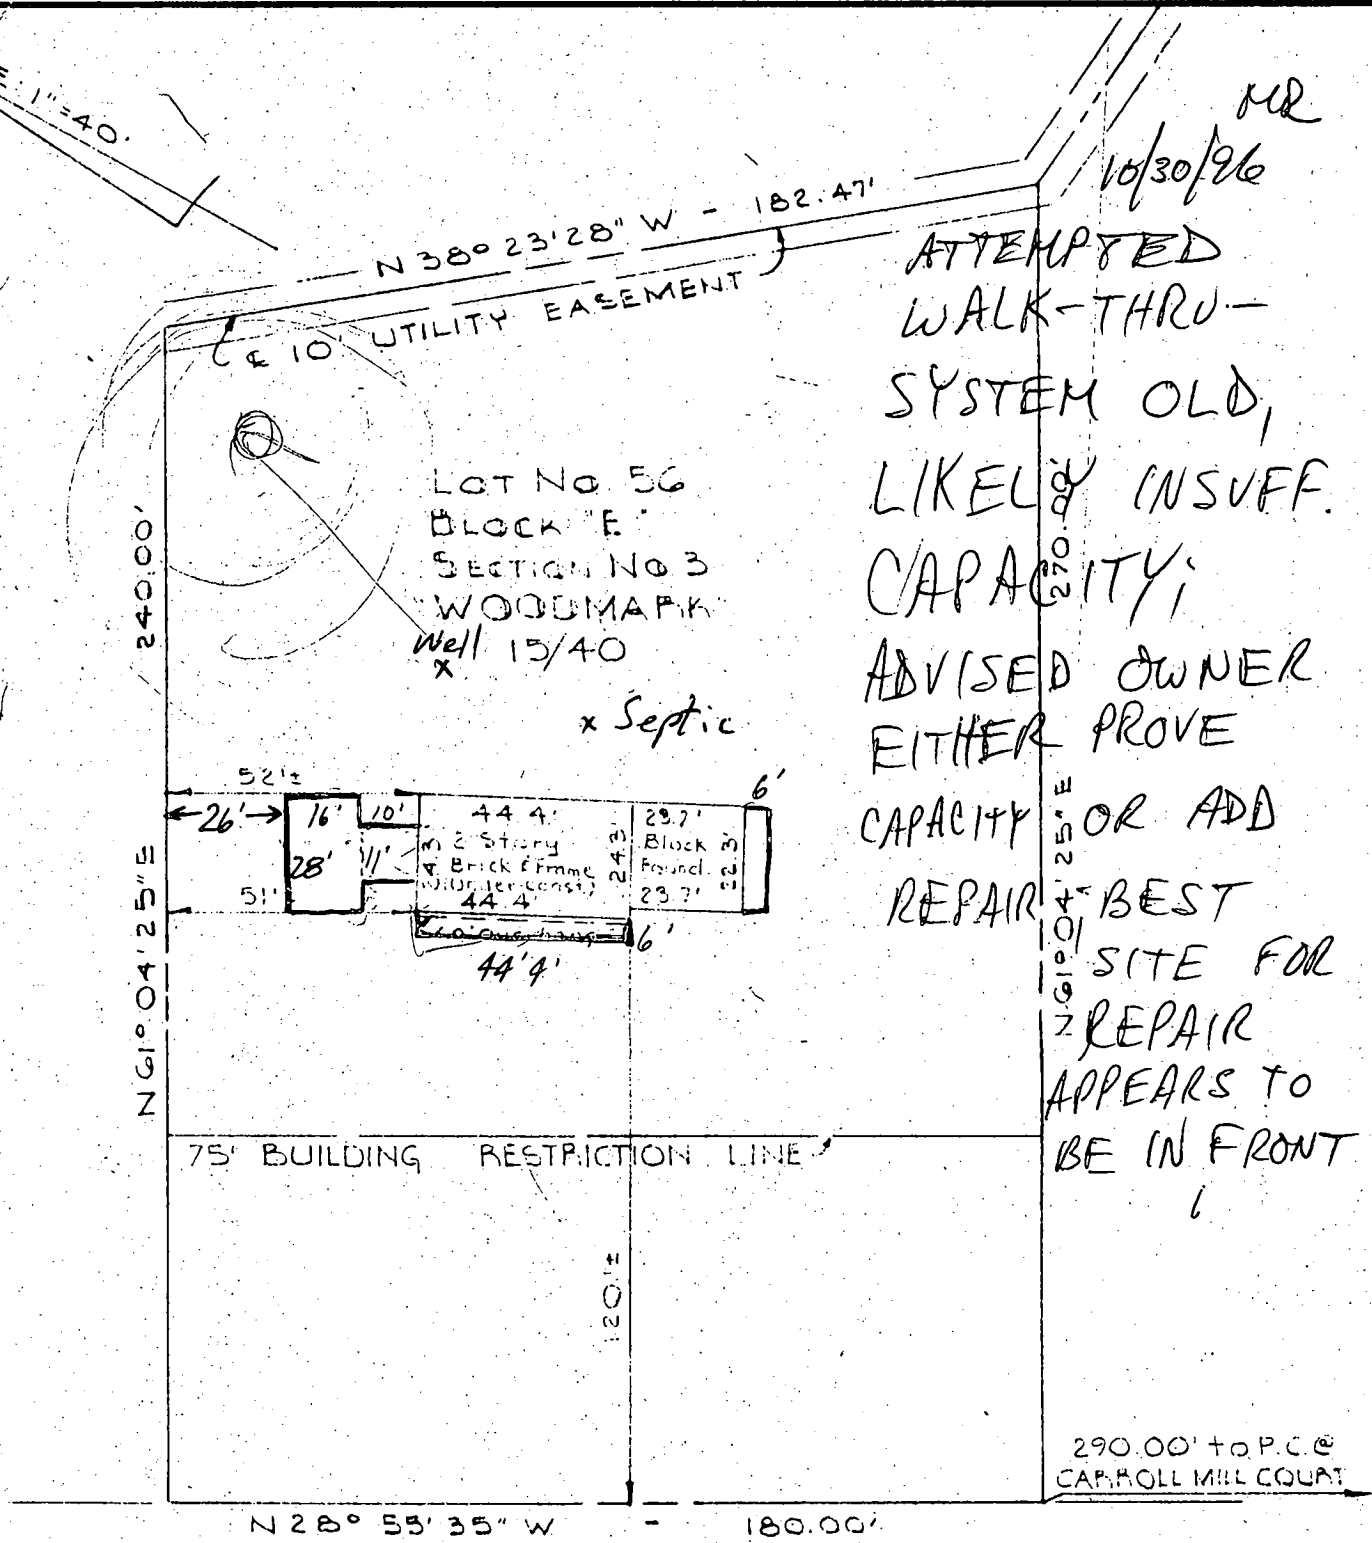 E: 1"=40.
MR
10/30/96
N 38° 23' 28" W - 182.47'
℄ 10' UTILITY EASEMENT
ATTEMPTED
WALK-THRU-
SYSTEM OLD,
LIKELY INSUFF.
CAPACITY;
ADVISED OWNER
EITHER PROVE
CAPACITY OR ADD
REPAIR; BEST
SITE FOR
REPAIR
APPEARS TO
BE IN FRONT
LOT No. 56
BLOCK "E"
SECTION No 3
"WOODMARK"
Well 15/40
x
x Septic
240.00'
N 61° 04' 25" E
270.00'
N 61° 04' 25" E
52'±
26'
16'
10'
44.4'
23.7'
6'
28'
11'
2 Story
Brick & Frame
(Under const.)
44.4'
24.3'
Block
Found.
23.7'
22.3'
51'
6'
44'4'
75' BUILDING RESTRICTION LINE
120'±
290.00' to P.C. @
CARROLL MILL COURT
N 28° 55' 35" W - 180.00'